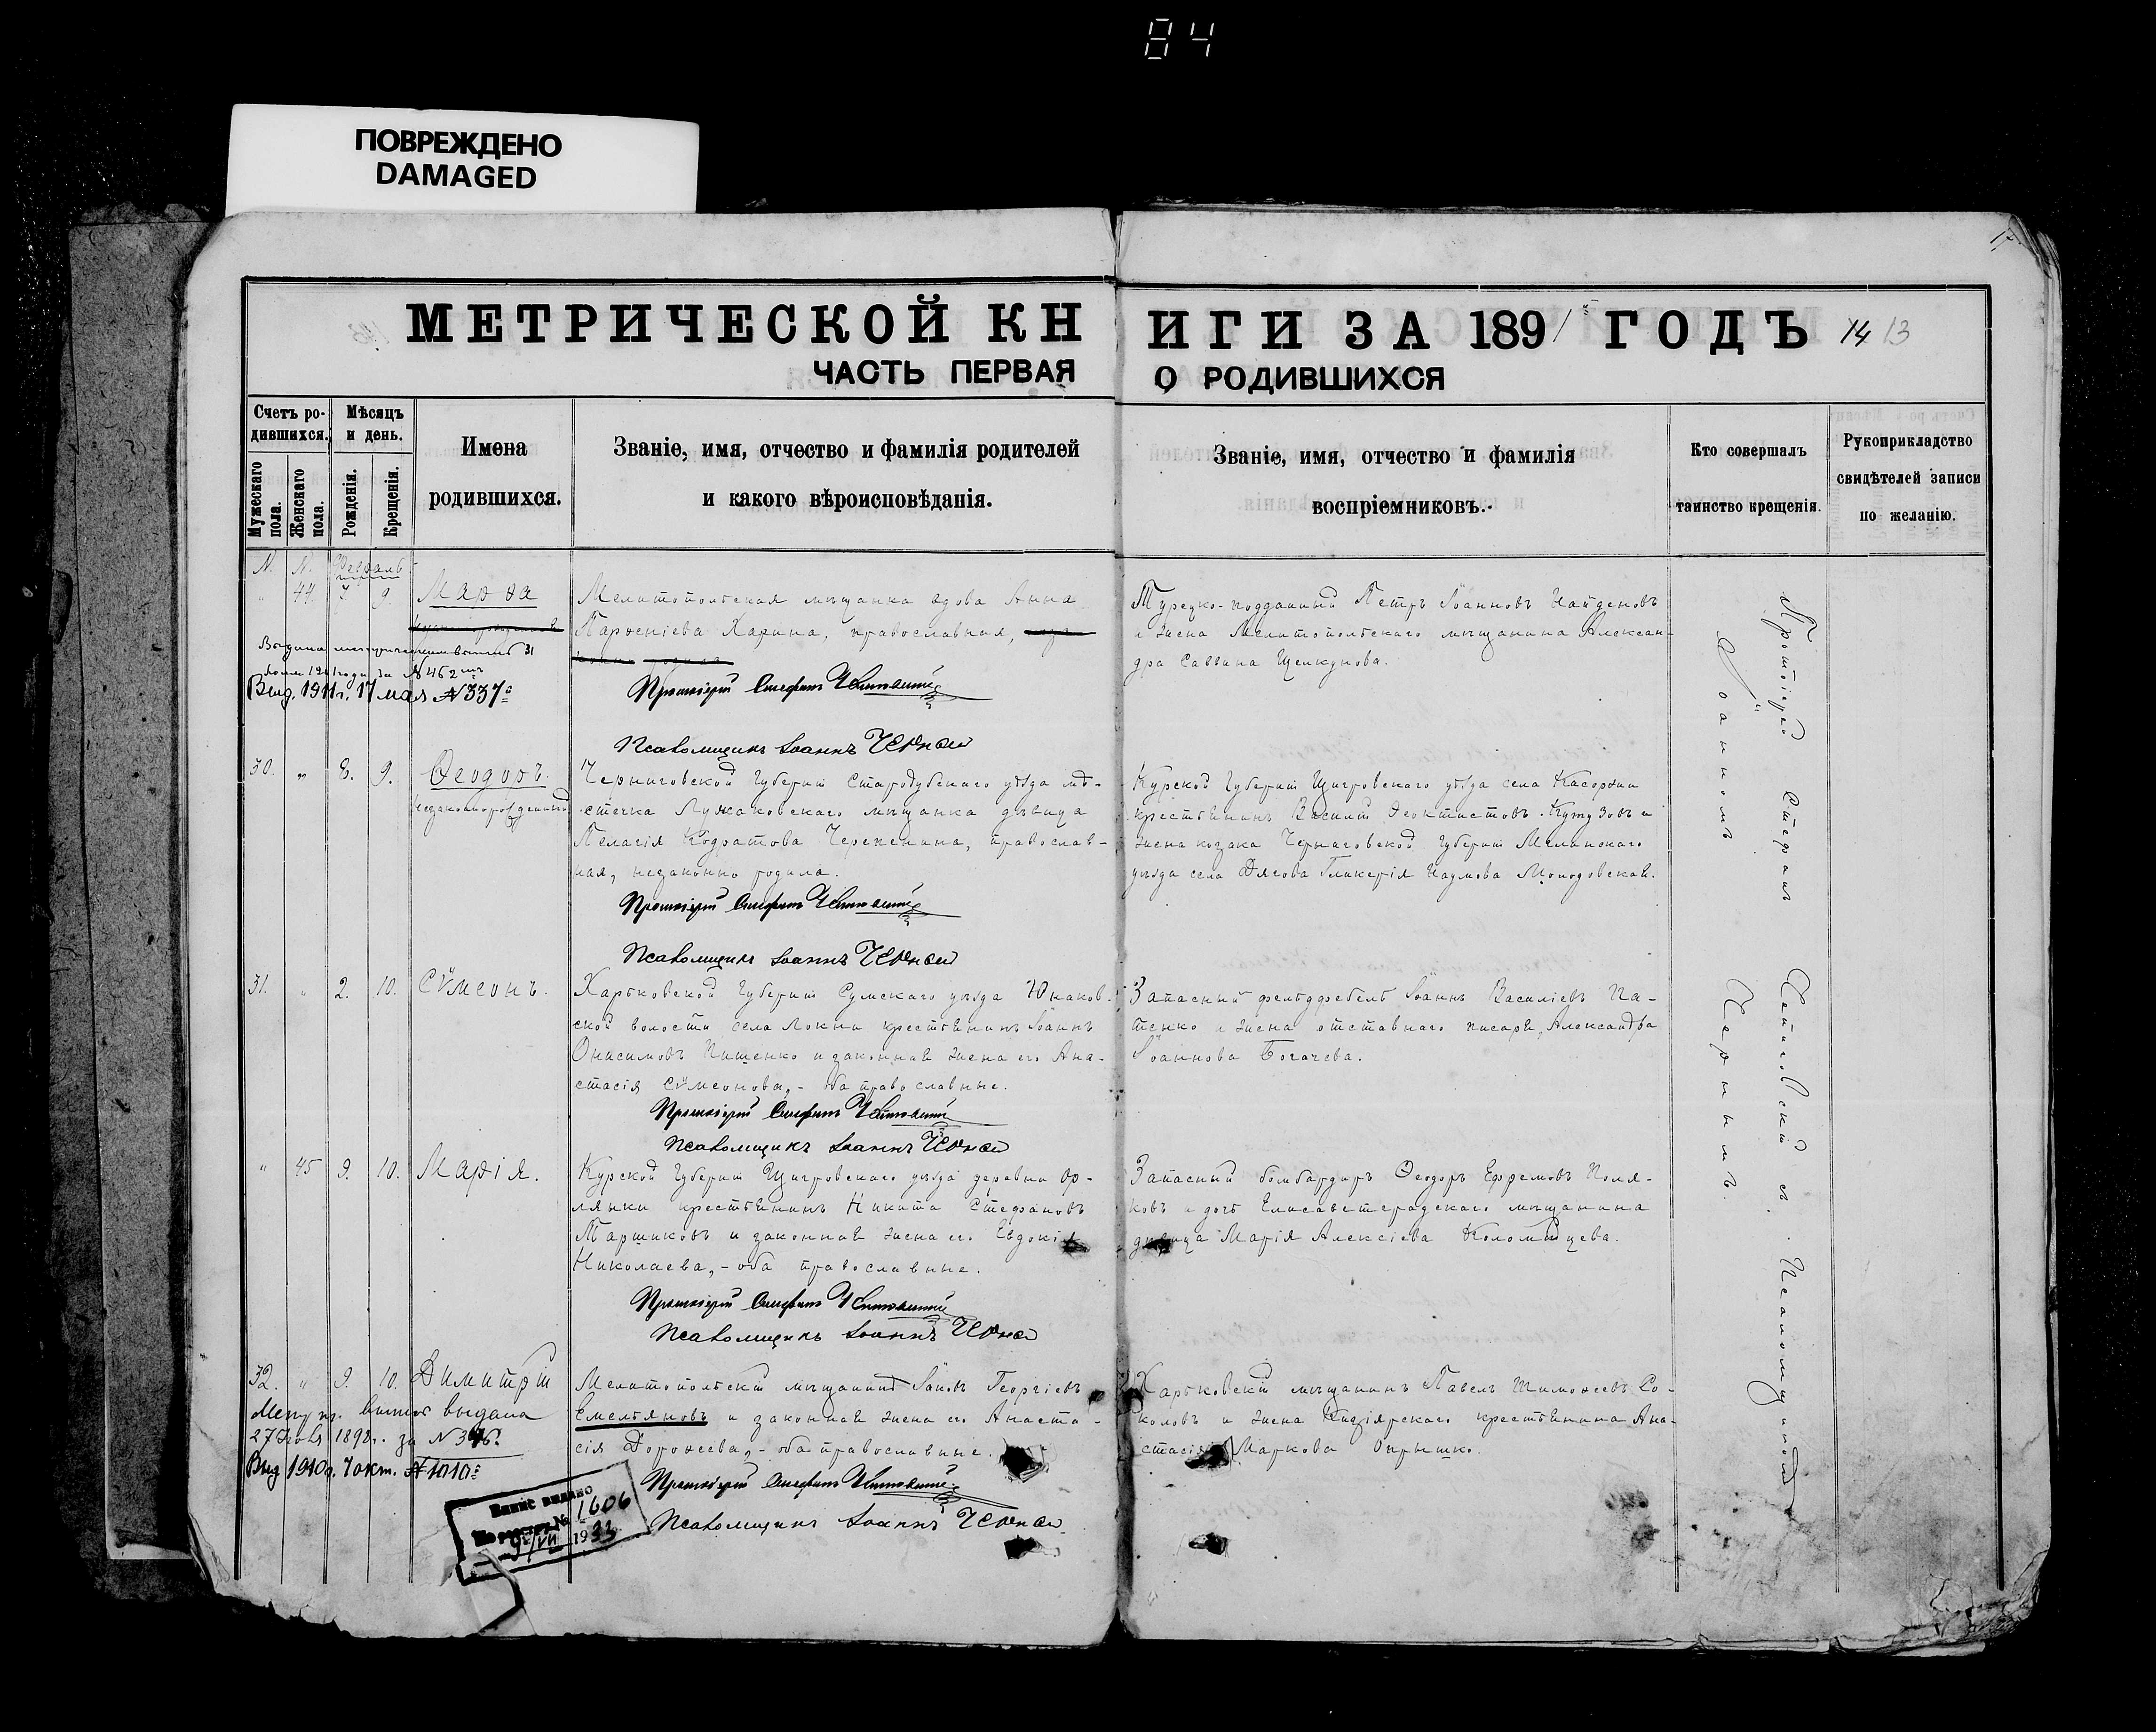 84
ПОВРЕЖДЕНО
DAMAGED
МЕТРИЧЕСКОЙ КН
ИГИ ЗА 1891 ГОДЪ 14 13
ЧАСТЬ ПЕРВАЯ
О РОДИВШИХСЯ
Счетъ ро-
дившихся.
Мужескаго пола.
Женскаго пола.
Мѣсяцъ
и день.
Рожденія.
Крещенія.
Имена
родившихся.
Званіе, имя, отчество и фамилія родителей
и какого вѣроисповѣданія.
Званіе, имя, отчество и фамилія
воспріемниковъ.
Кто совершалъ
таинство крещенія.
Рукоприкладство
свидѣтелей записи
по желанію.
N. N. Февраль
" 44. 7. 9. Марѳа
Мелитопольская мѣщанка вдова Анна
Парѳеніева Харина, православная,
Выд. 1911 г. 17 мая №337
Протоіерей Стефанъ
Псаломщикъ Іоаннъ Черный
Турецко-подданный Петръ Іоанновъ Найденовъ
и жена Мелитопольскаго мѣщанина Алексан-
дра Саввина Щелкунова.
30. " 8. 9. Ѳеодоръ.
незаконнорожденный
Черниговской Губерніи Стародубскаго уѣзда мѣ-
стечка Лужковскаго мѣщанка дѣвица
Пелагія Кодратова Черепенина, православ-
ная, незаконно родила.
Протоіерей Стефанъ
Псаломщикъ Іоаннъ Черный
Курской Губерніи Щигровскаго уѣзда села Касоржи
крестьянинъ Василій Ѳеоктистовъ Кутузовъ и
жена козака Черниговской Губерніи
уѣзда села Дягова Гликерія Наумова
31. " 2. 10. Сѵмеонъ.
Харьковской Губерніи Сумскаго уѣзда Юнаков-
ской волости села Локни крестьянинъ Іоаннъ
Онисимовъ Пащенко и законная жена его Ана-
стасія Сѵмеонова,- оба православные.
Протоіерей Стефанъ
Псаломщикъ Іоаннъ Черный
Запасный фельдфебель Іоаннъ Василіевъ Па-
тенко и жена отставнаго писаря, Александра
Іоаннова Богачева.
" 45 9. 10. Марія.
Курской Губерніи Щигровскаго уѣзда деревни Ор-
лянки крестьянинъ Никита Стефановъ
Паршиковъ и законная жена его Евдокія
Николаева,- оба православные.
Протоіерей Стефанъ
Псаломщикъ Іоаннъ Черный
Запасный бомбардиръ Ѳеодоръ Ефремовъ Поля-
ковъ и дочь Елисаветградскаго мѣщанина
дѣвица Марія Алексіева Коломійцева.
32. " 9. 10. Димитрій
Мелитопольскій мѣщанинъ Іоаннъ Георгіевъ
Емельяновъ и законная жена его Анаста-
сія Дороѳеева,- оба православные.
выдана
1898г. за №
Выд 1910г. 7 окт. №1010
Протоіерей Стефанъ
Псаломщикъ Іоаннъ Черный
Харьковскій мѣщанинъ Павелъ Тимоѳеевъ Со-
коловъ и жена крестьянина Ана-
стасія Маркова Опрышко.
Протоіерей Стефанъ
съ Псаломщикомъ
Іоанномъ Чернымъ.
Випис видано
№ 1606
1933